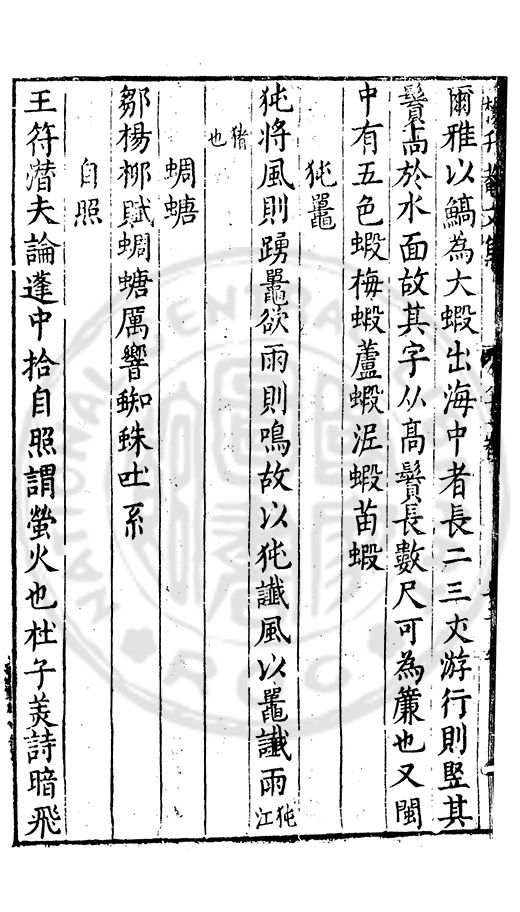 爾雅以鰝為大蝦出海中者長二三丈游行則竪其
鬚高於水面故其字从高鬚長數尺可為簾也又閩
中有五色蝦梅蝦蘆蝦泥蝦苗蝦
㹠鼉
㹠將風則踴鼉欲雨則鳴故以㹠讖風以鼉讖雨㹠江
猪也
蜩螗
鄒楊栁賦蜩螗厲響蜘蛛吐系
自照
王符潛夫論蓬中拾自照謂螢火也杜子美詩暗飛